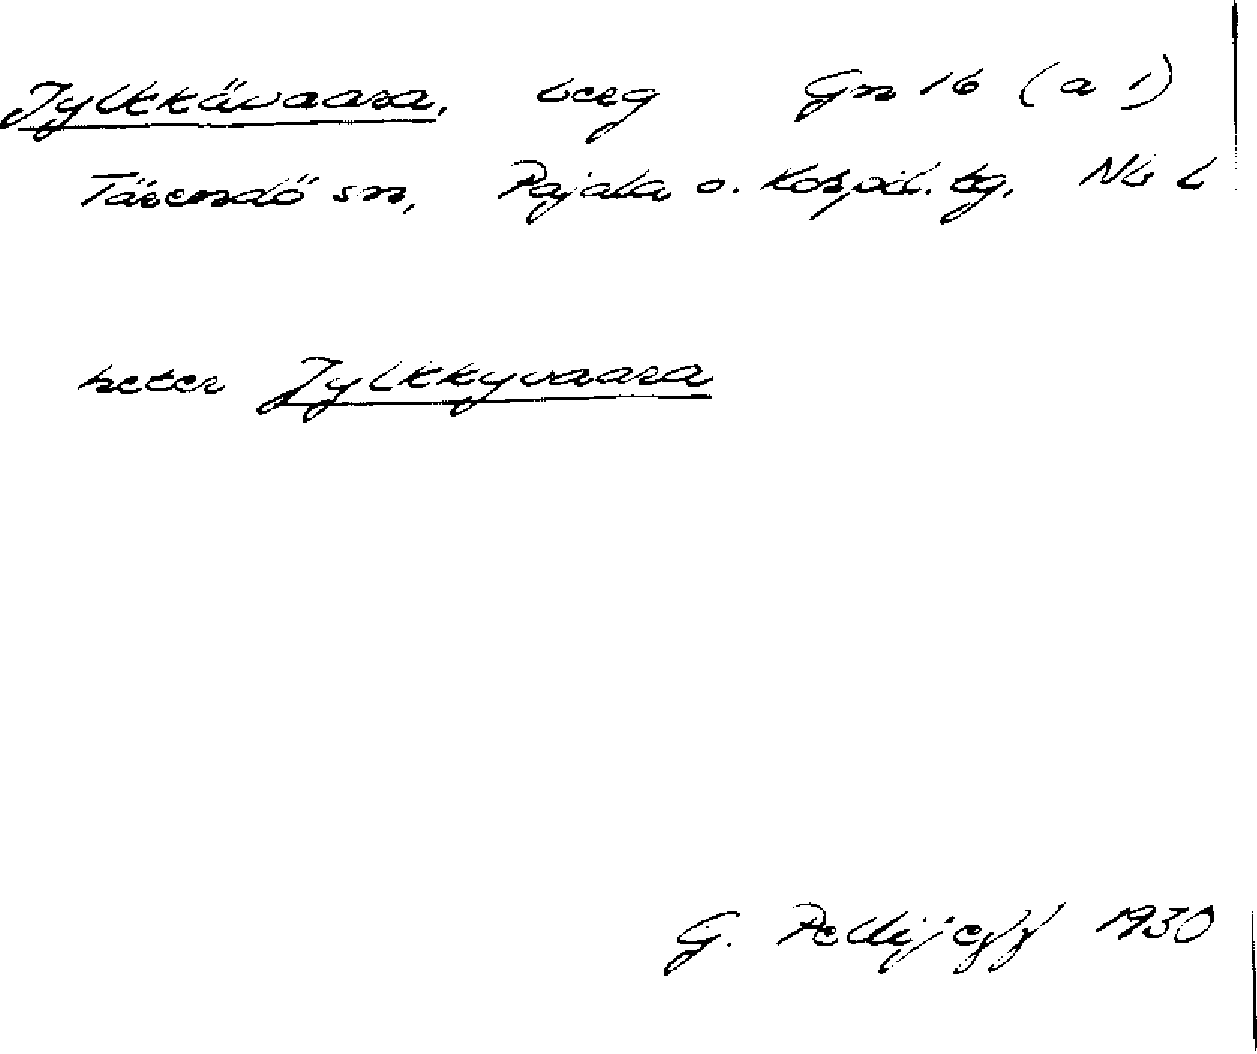 Jylkkävaara, berg Gn 16 (a 1)
Tärendö sn, Pajala o. Korpil. tg, Nb L
heter Jylkkyvaara
G. Pellijeff 1930